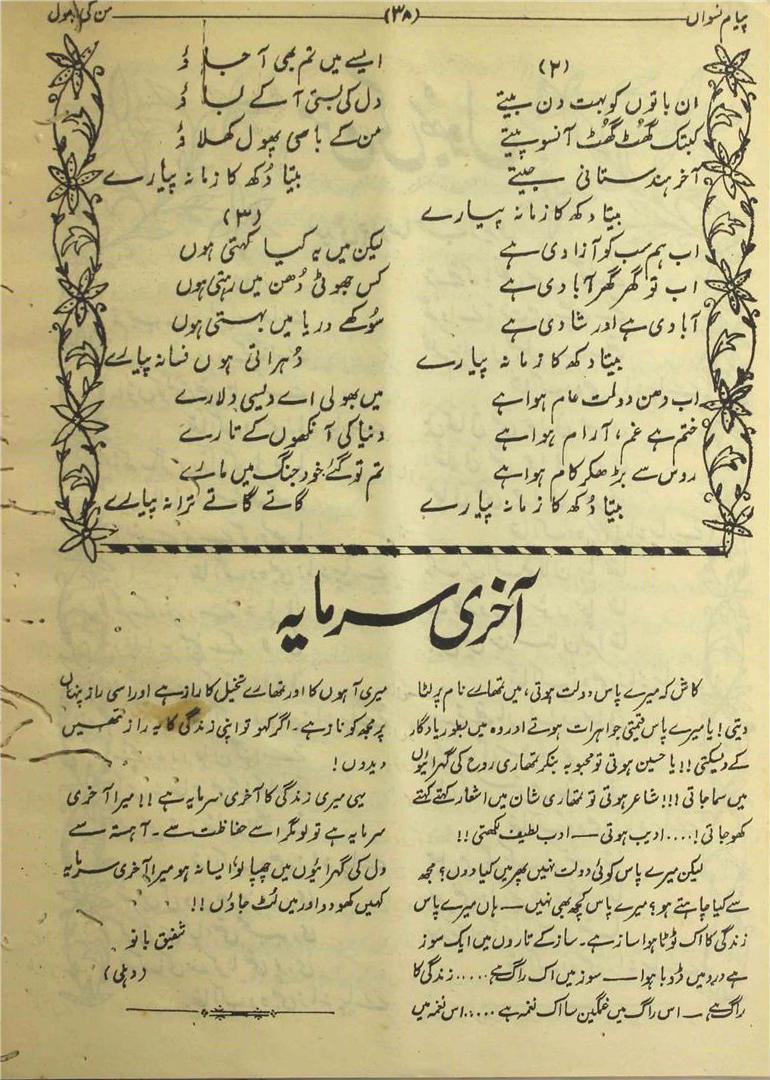 پیام نسواں
(۳۸)
من کی بھول
(۲)
ان باتوں کو بہت دن بیتے
کبتک گھُٹ گھُٹ آنسو پیتے
آخر ہندستانی جیتے
بیتا دکھ کا زمانہ پیارے
اب ہم سب کو آزادی ہے
اب تو گھر گھر آبادی ہے
آبادی ہے اور شادی ہے
بیتا دکھ کا زمانہ پیارے
اب دھن دولت عام ہوا ہے
ختم ہے غم، آرام ہوا ہے
روس سے بڑھکر کام ہوا ہے
بیتا دُکھ کا زمانہ پیارے
ایسے میں تم بھی آ جاؤ
دل کی بستی آ کے بساؤ
من کے باسی پھول کھلاؤ
بیتا دُکھ کا زمانہ پیارے
(۳)
لیکن میں یہ کیا کہتی ہوں
کس جھوٹی دُھن میں رہتی ہوں
سُوکھے دریا میں بہتی ہوں
دُہراتی ہوں فسانہ پیارے
میں بھولی اے دیسی دلارے
دنیا کی آنکھوں کے تارے
تم تو گئے خود جنگ میں مارے
گاتے گاتے ترانہ پیارے
آخری سرمایہ
کاش کہ میرے پاس دولت ہوتی، میں تمھارے نام پر لٹا
دیتی! یا میرے پاس قیمتی جواہرات ہوتے اور وہ میں بطور یادگار
کے دیسکتی!! یا حسین ہوتی تو محبوبہ بنکر تمھاری روح کی گہرائیوں
میں سما جاتی!!! شاعر ہوتی تو تمھاری شان میں اشعار کہتے کہتے
کھو جاتی!.... ادیب ہوتی — ادب لطیف لکھتی!!
لیکن میرے پاس کوئی دولت نہیں پھر میں کیا دوں؟ مجھ
سے کیا چاہتے ہو؟ میرے پاس کچھ بھی نہیں — ہاں میرے پاس
زندگی کا اک ٹوٹا ہوا ساز ہے۔ ساز کے تاروں میں ایک سوز
ہے درد میں ڈوبا ہوا — سوز میں اک راگ ہے..... زندگی کا
راگ ہے — اس راگ میں غمگین سا اک نغمہ ہے ..... اس نغمہ میں
میری آہوں کا اور تمھارے تخیل کا راز ہے اور اسی راز پنہاں
پر مجھ کو ناز ہے۔ اگر کہو تو اپنی زندگی کا یہ راز تمھیں
دیدوں!
یہی میری زندگی کا آخری سرمایہ ہے!! میرا آخری
سرمایہ ہے تو لو مگر اسے حفاظت سے۔ آہستہ سے
دل کی گہرائیوں میں چھپا لو، ایسا نہ ہو میرا آخری سرمایہ
کہیں کھو دو اور میں لُٹ جاؤں!!
شفیق بانو
(دہلی)